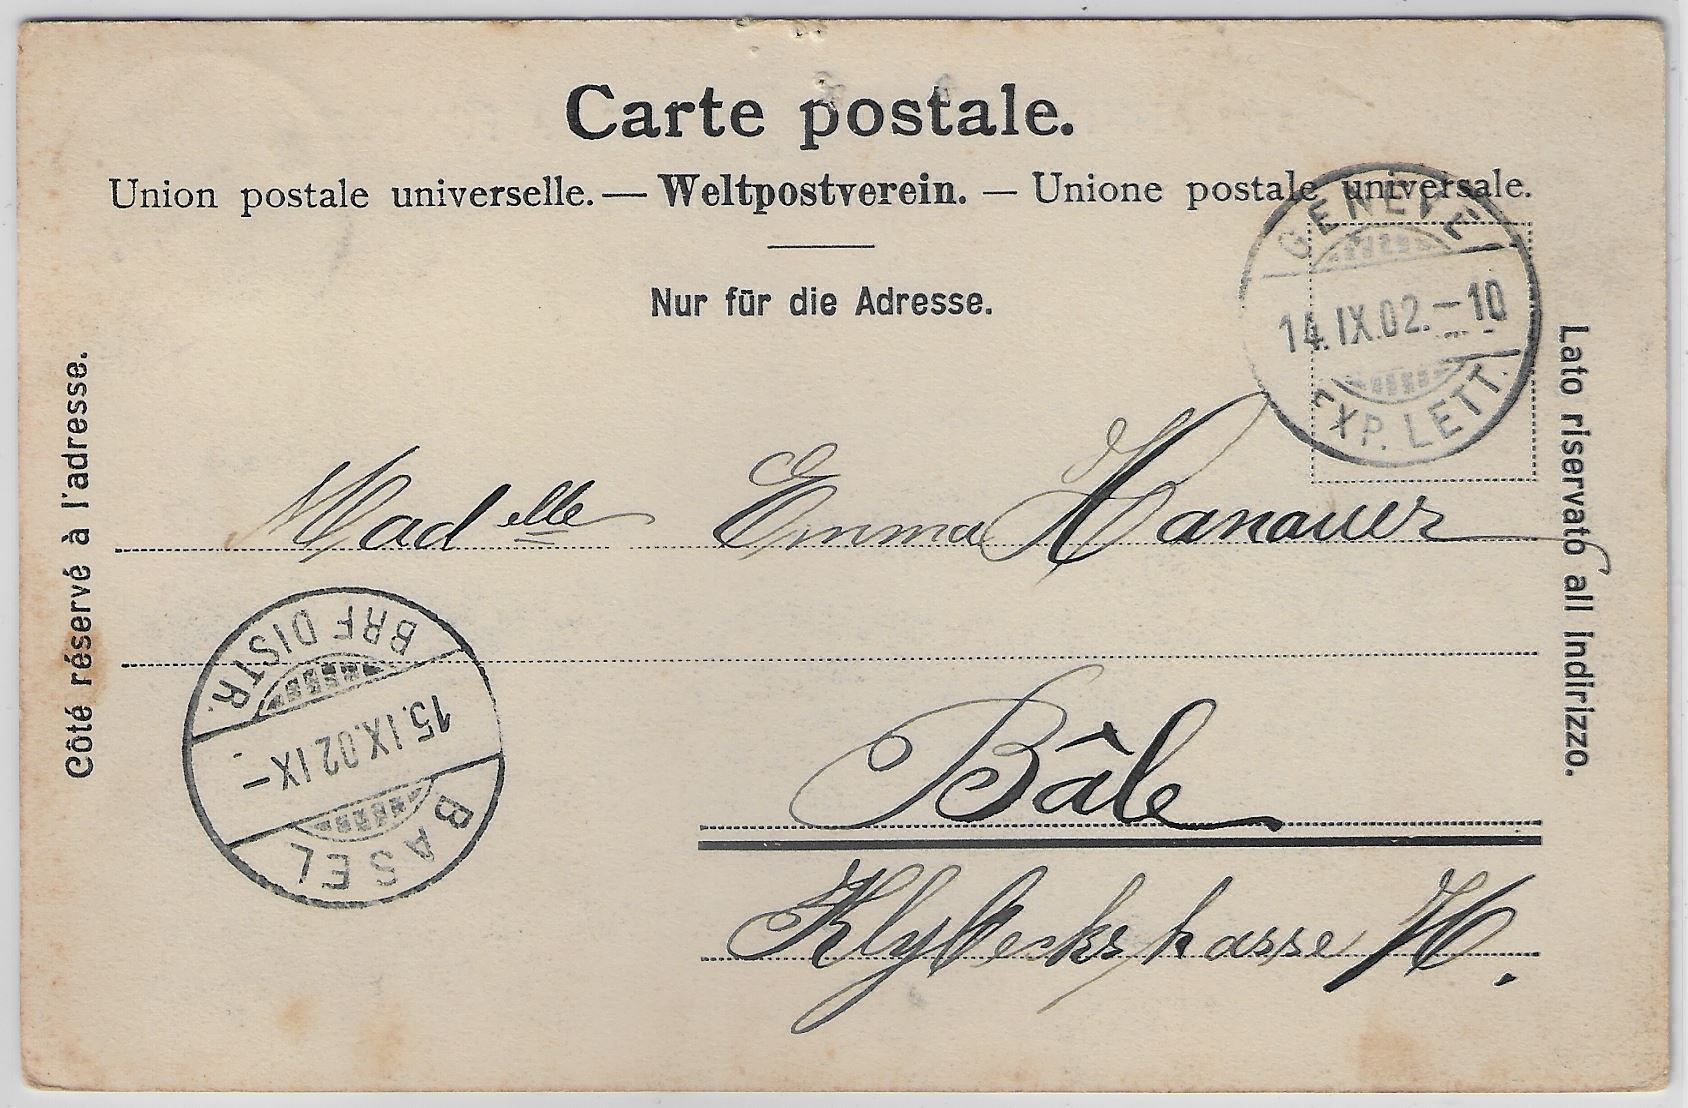 Carte postale.
Union postale universelle. — Weltpostverein. — Unione postale universale.
Nur für die Adresse.
Côté réservé à l'adresse.
Lato riservato all indirizzo.
GENEVE
14.IX.02.–10
EXP. LETT.
Madelle Emma Hanauer
BRF DISTR.
15.IX.02 IX–
BASEL
Bâle
Klybeckstrasse